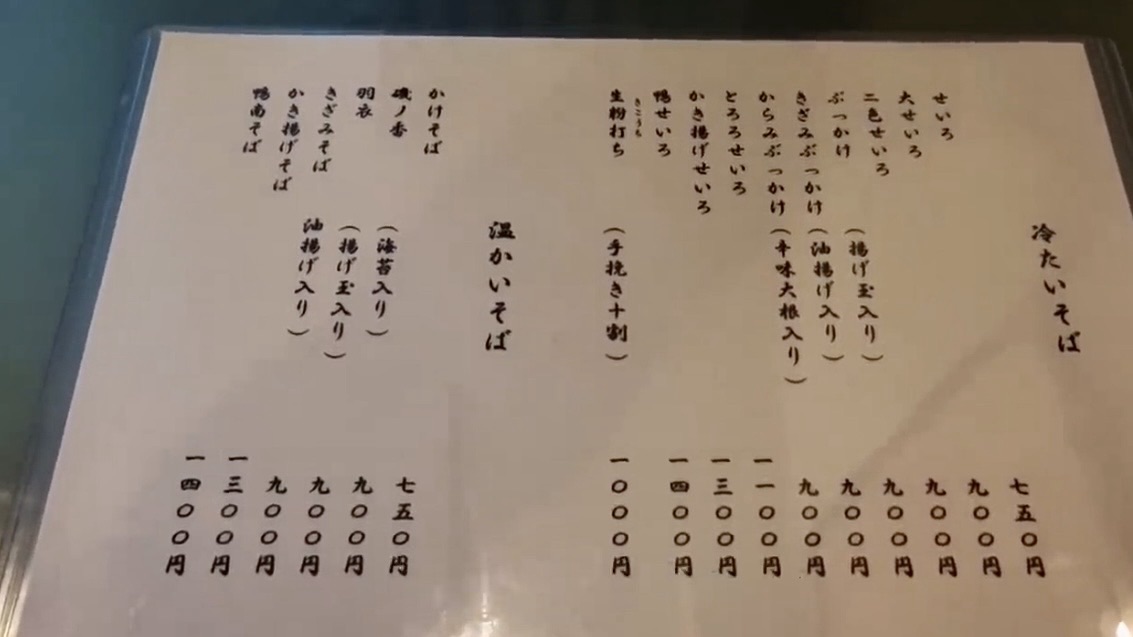 冷たいそば
せいろ 七五〇円
大せいろ 九〇〇円
二色せいろ 九〇〇円
ぶっかけ (揚げ玉入り) 九〇〇円
きざみぶっかけ (油揚げ入り) 九〇〇円
からみぶっかけ (辛味大根入り) 九〇〇円
とろろせいろ 一一〇〇円
かき揚げせいろ 一三〇〇円
鴨せいろ 一四〇〇円
きこうち
生粉打ち (手挽き十割) 一〇〇〇円
温かいそば
かけそば 七五〇円
磯ノ香 (海苔入り) 九〇〇円
羽衣 (揚げ玉入り) 九〇〇円
きざみそば 油揚げ入り) 九〇〇円
かき揚げそば 一三〇〇円
鴨南そば 一四〇〇円